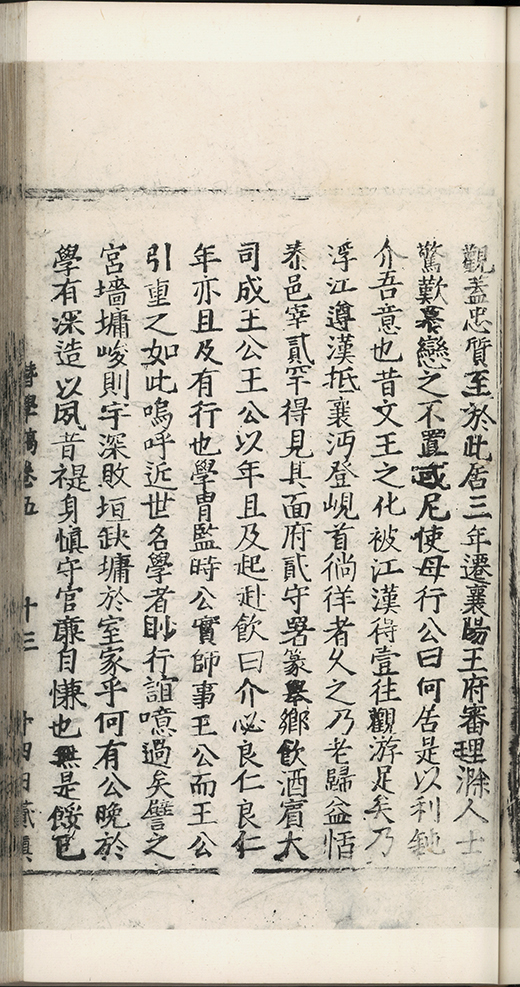 觀盖忠質至於此居三年遷襄陽王府審理滁人士
驚歎畏戀之不置或尼使毋行公曰何居是以利鈍
介吾意也昔文王之化被江漢得壹往觀游足矣乃
浮江遵漢抵襄沔登峴首徜徉者久之乃老歸益恬
泰邑宰貳罕得見其面府貳守署篆舉鄉飲酒賓大
司成王公王公以年且及起赴飲曰介必良仁良仁
年亦且及有行也學胄監時公實師事王公而王公
引重之如此嗚呼近世名學者眇行誼噫過矣譬之
宮墻墉峻則宇深敗垣缺墉於室家乎何有公晚於
學有深造以夙昔禔身慎守官廉自慊也無是餒已
替學稿卷五 十三